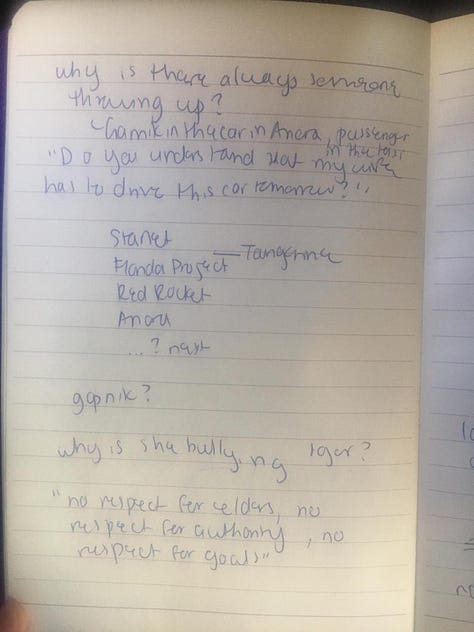 why is there always someone
throwing up?
↳Garnik in the car in Anora, passenger
in the taxi
"Do you understand that my wife
has to drive this car tomorrow?"
Starlet
— Tangerine
Florida Project
Red Rocket
Anora
...? next
gopnik?
why is she bullying Igor?
"no respect for elders, no
respect for authority, no
respect for goals"